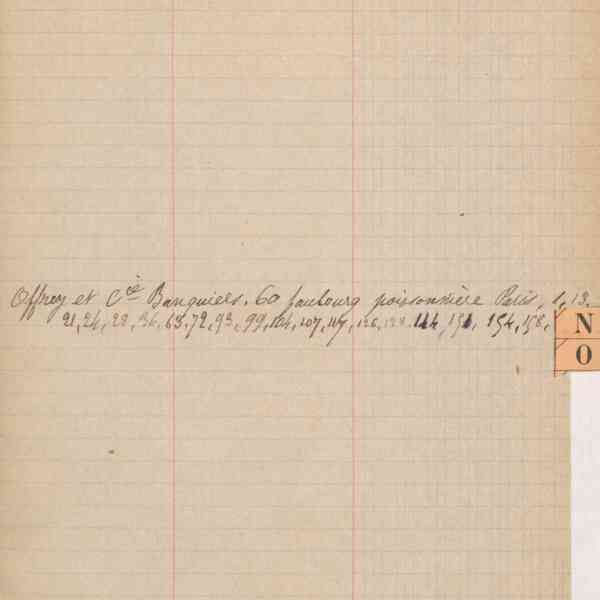 Offroy et Cie Banquiers, 60 faubourg poissonnière Paris, 1, 13,
21, 24, 28, 36, 63, 72, 93, 99, 104, 107, 117, 126, 128, 144, 151, 154, 158,
N
O